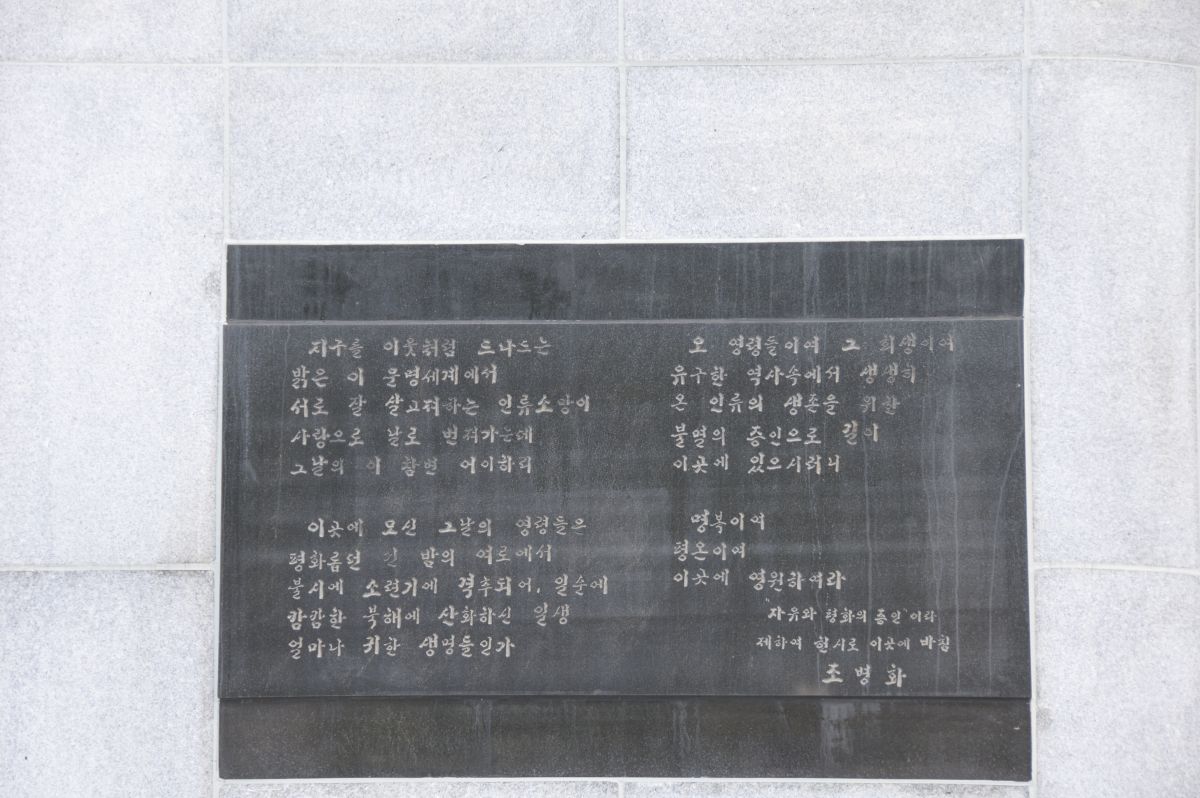 지구를 이웃처럼 드나드는
밝은 이 문명세계에서
서로 잘 살고져하는 인류소망이
사랑으로 날로 번져가는데
그날의 이 참변 어이하리
이곳에 모신 그날의 영령들은
평화롭던 발의 여로에서
불시에 소련기에 격추되어, 일순에
캄캄한 북해에 산화하신 일생
얼마나 귀한 생명들인가
오 영령들이여 그 희생이여
유구한 역사속에서 생생히
온 인류의 생존을 위한
불멸의 증인으로 길이
이곳에 있으시려니
명복이여
평온이여
이곳에 영원하여라
"자유와 평화의 증인"이라
제하여 헌시로 이곳에 바침
조병화